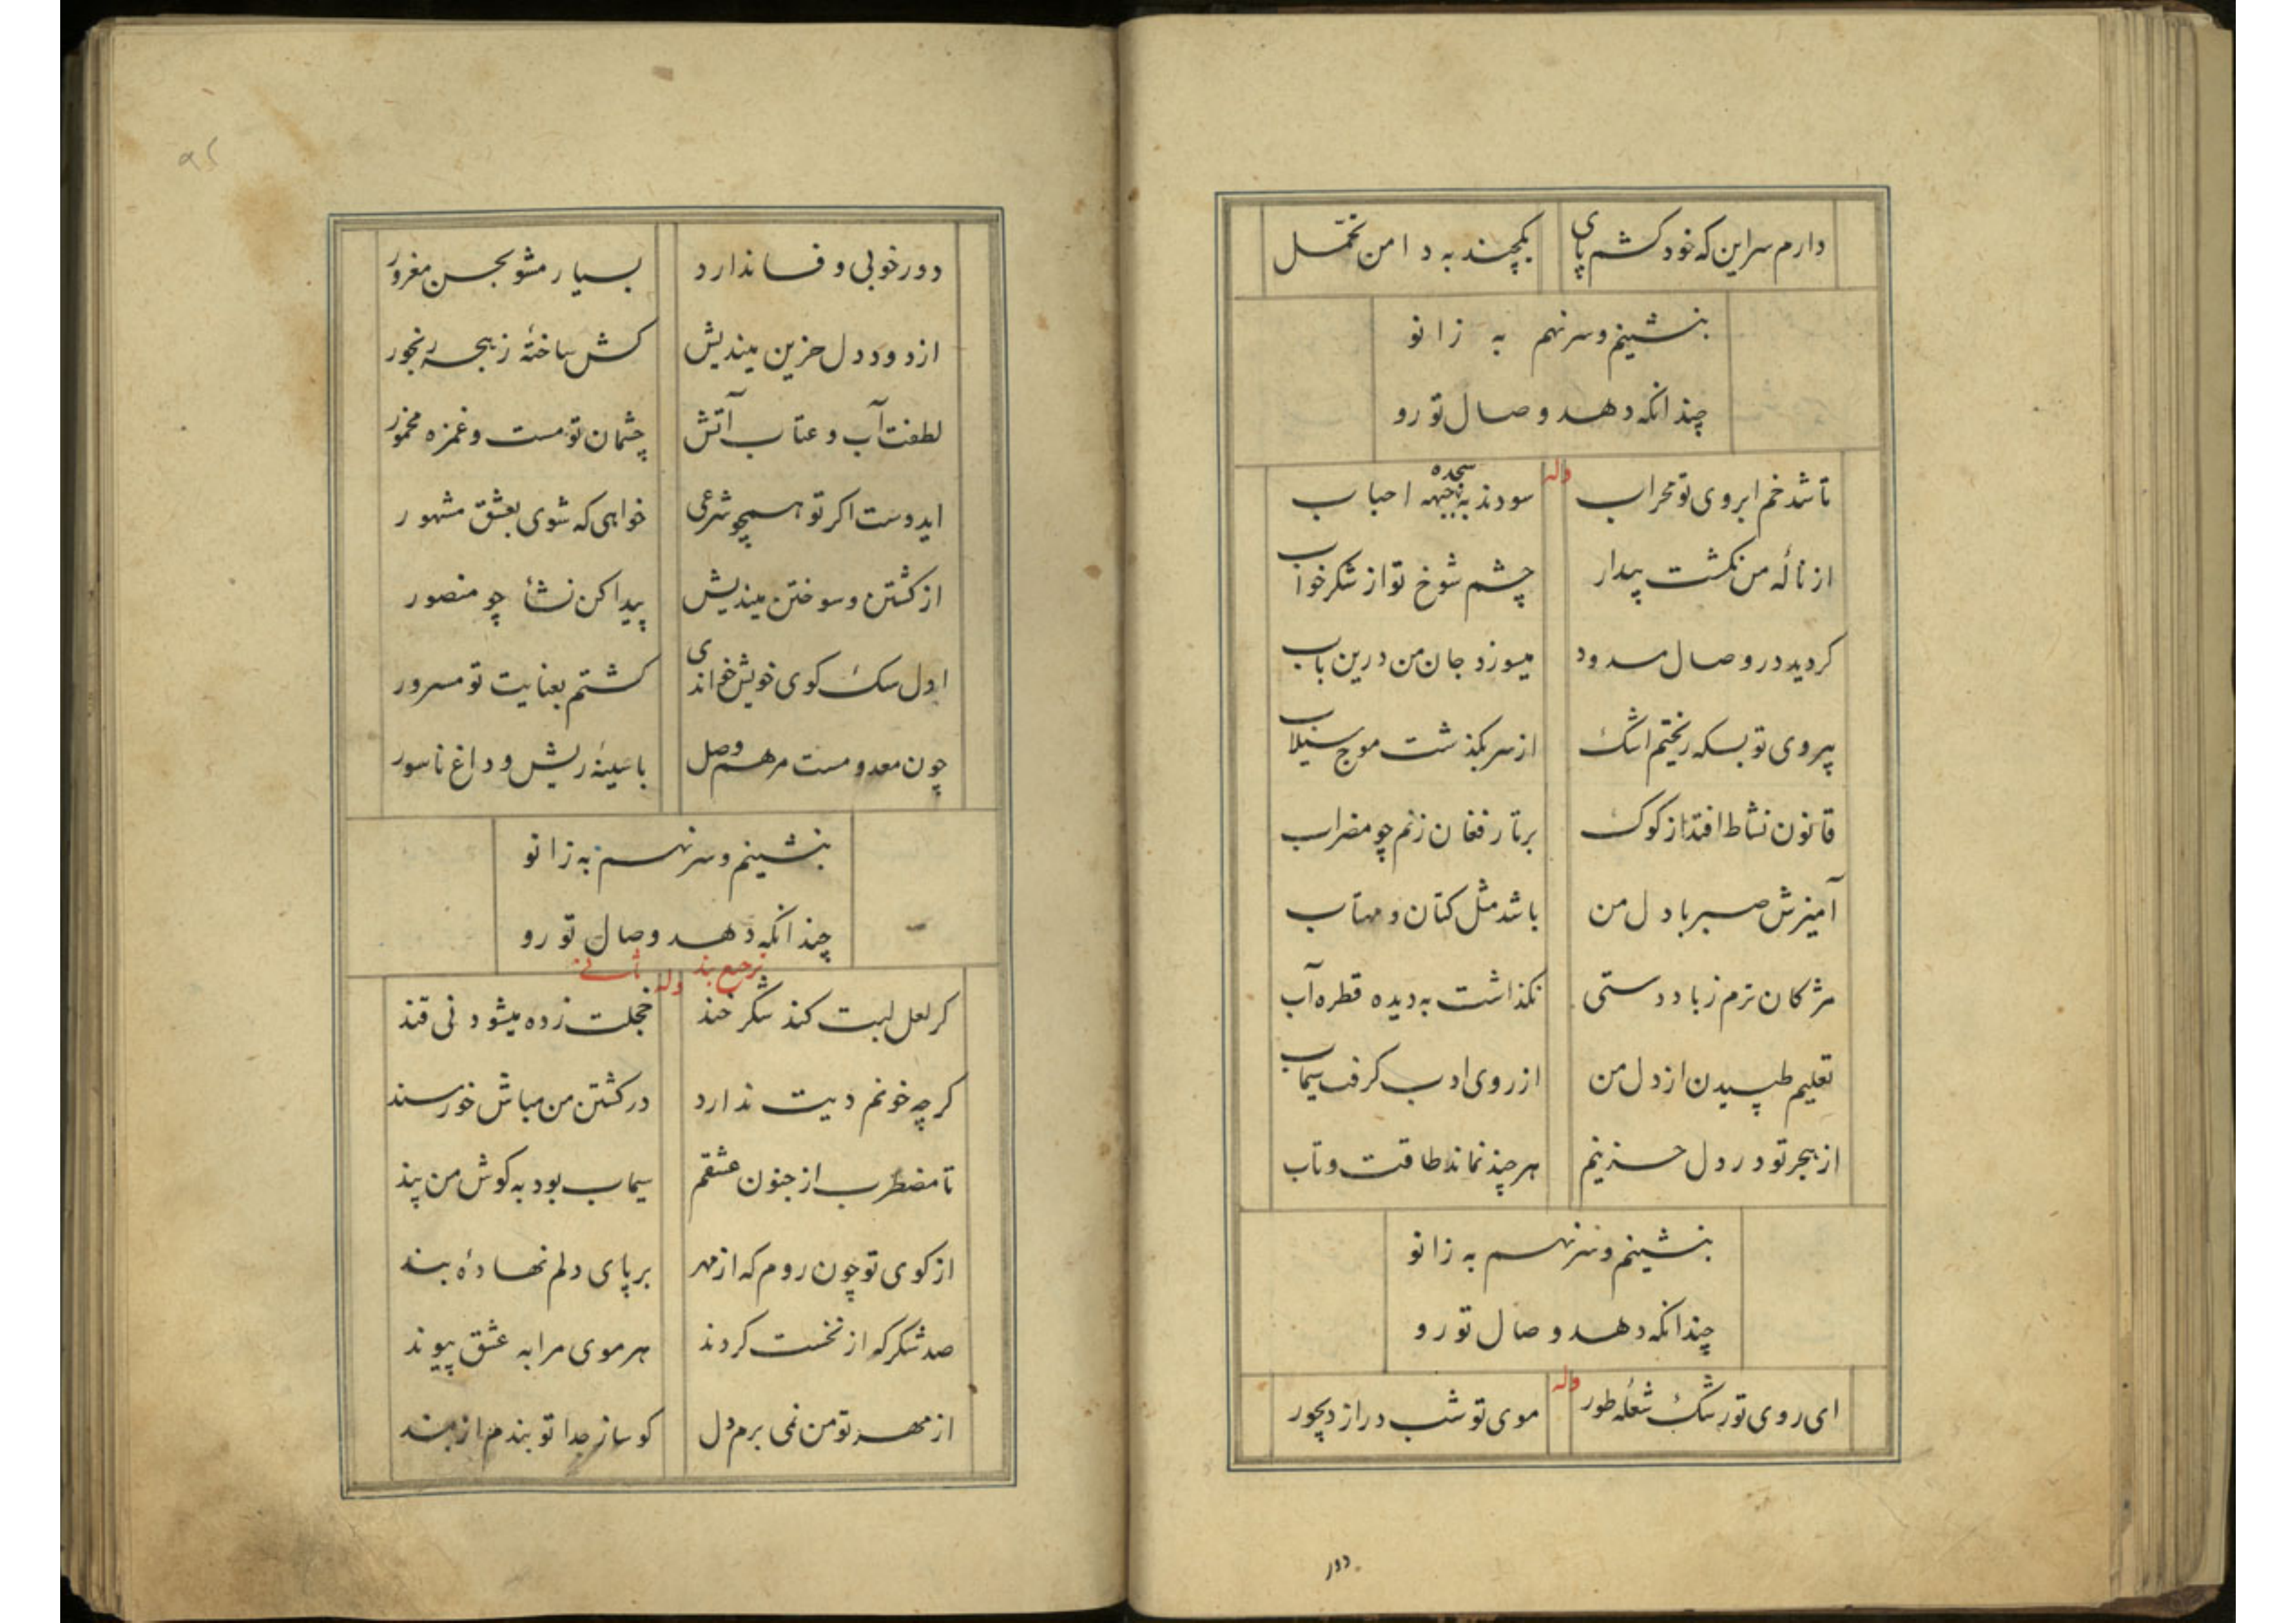 دارم سر این که خود کشم پای یکچند به دامن تحمّل
بنشینم و سر نهم به زانو
چندانکه دهد وصال تو رو
وله
تا شد خم ابروی تو محراب سودند به سجده جبهه احباب
از نالهٔ من نکشت بیدار چشم شوخ تو از شکر خواب
کردید در وصال مسدود میسوزد جان من درین باب
بیروی تو بسکه ریختم اشک از سر بکذشت موج سیلاب
قانون نشاط افتد از کوک بر تار فغان زنم چو مضراب
آمیزش صبر با دل من باشد مثل کتان و مهتاب
مژکان ترم ز باد دستی نکذاشت به دیده قطره آب
تعلیم طپیدن از دل من از روی ادب کرفت سیماب
از هجر تو در دل حزینم هر چند نماند طاقت و تاب
بنشینم و سر نهم به زانو
چندانکه دهد وصال تو رو
وله
ای روی تو رشک شعلهٔ طور موی تو شب دراز دیجور
دور
دور خوبی وفا ندارد بسیار مشو بحسن مغرور
از دود دل حزین میندیش کش ساختهٔ ز هجر رنجور
لطفت آب و عتاب آتش چشمان تو مست و غمزه مخمور
ایدوست اکر تو همچو شرعی خواهی که شوی بعشق مشهور
از کشتن و سوختن میندیش پیدا کن نشأ چو منصور
اول سک کوی خویش خواندی کشتم بعنایت تو مسرور
چون معدومست مرهم وصل با سینهٔ ریش و داغ ناسور
بنشینم و سر نهم به زانو
چندانکه دهد وصال تو رو
ترجیع بند وله ثانی
کر لعل لبت کند شکر خند خجلت زده میشود نی قند
کر چه خونم دیت ندارد در کشتن من مباش خورسند
تا مضطرب از جنون عشقم سیماب بود به کوش من پند
از کوی تو چون روم که از مهر بر پای دلم نهادهٔ بند
صد شکر که از نخست کردند هر موی مرا به عشق پیوند
از مهر تو من نمی برم دل کو ساز جدا تو بندم از بند